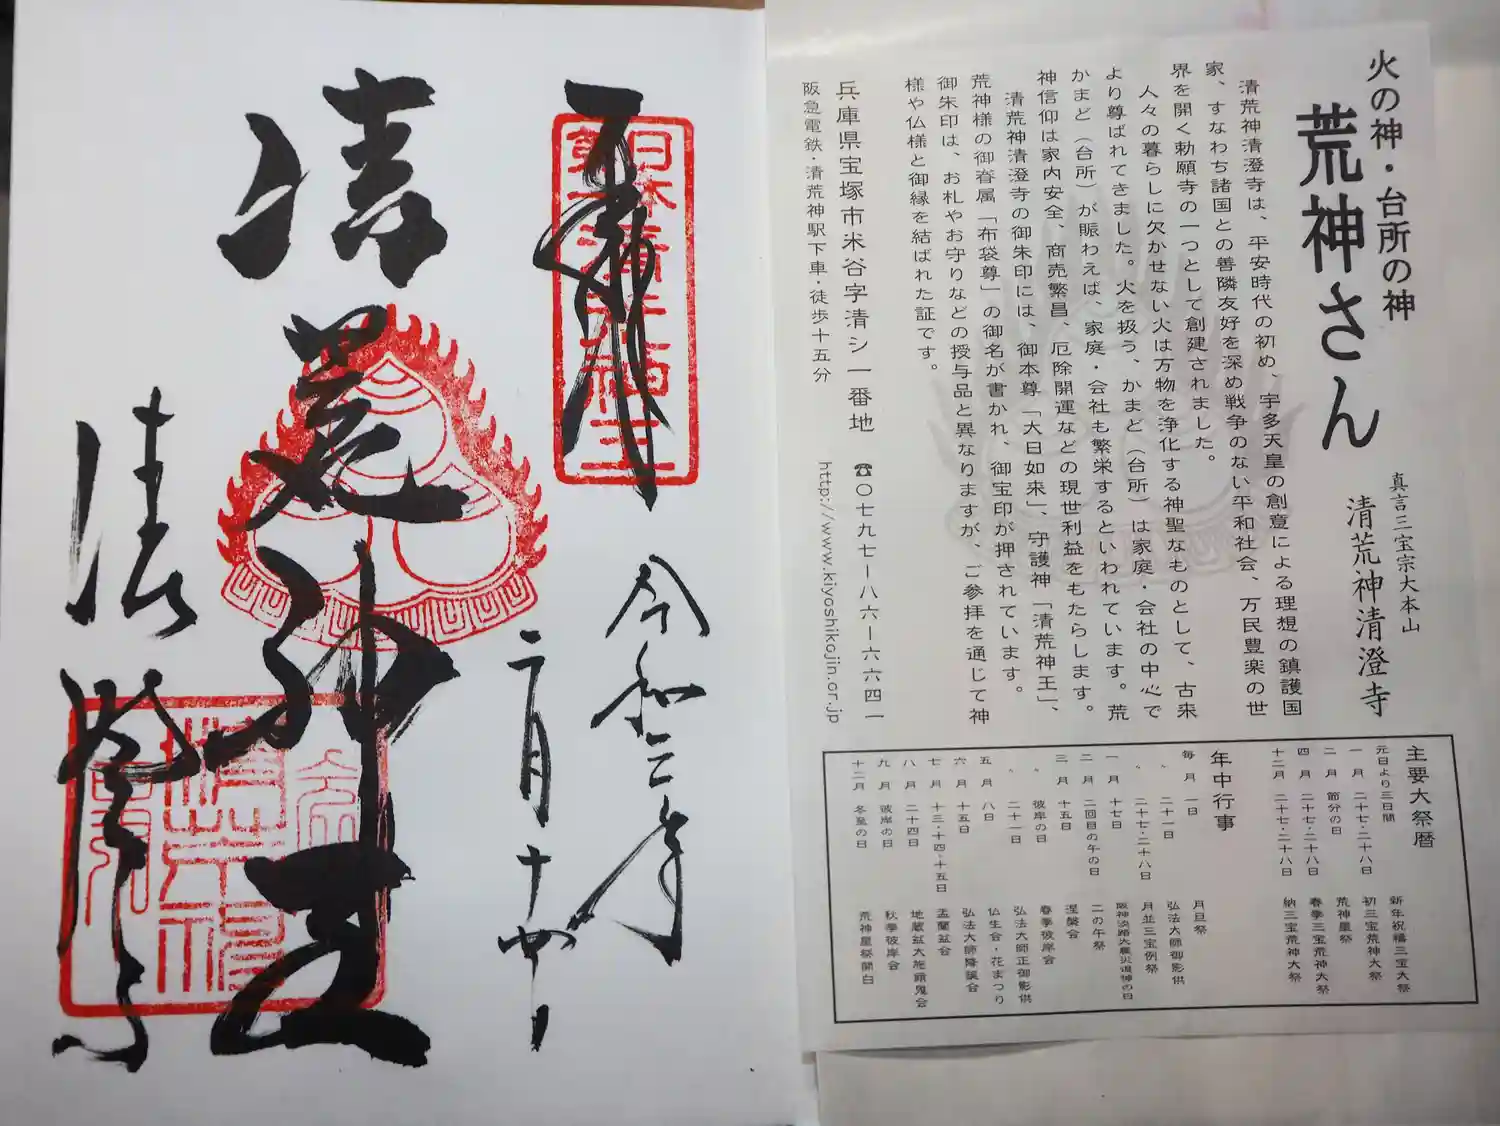 火の神・台所の神
荒神さん
真言三宝宗大本山
清荒神清澄寺
清荒神清澄寺は、平安時代の初め、宇多天皇の創意による理想の鎮護国
家、すなわち諸国との善隣友好を深め戦争のない平和社会、万民豊楽の世
界を開く勅願寺の一つとして創建されました。
人々の暮らしに欠かせない火は万物を浄化する神聖なものとして、古来
より尊ばれてきました。火を扱う、かまど（台所）は家庭・会社の中心で
かまど（台所）が賑わえば、家庭・会社も繁栄するといわれています。荒
神信仰は家内安全、商売繁昌、厄除開運などの現世利益をもたらします。
清荒神清澄寺の御朱印には、御本尊「大日如来」、守護神「清荒神王」、
荒神様の御眷属「布袋尊」の御名が書かれ、御宝印が押されています。
御朱印は、お札やお守りなどの授与品と異なりますが、ご参拝を通じて神
様や仏様と御縁を結ばれた証です。
兵庫県宝塚市米谷字清シ一番地 ☎〇七九七ー八六ー六六四一
阪急電鉄・清荒神駅下車・徒歩十五分 http://www.kiyoshikojin.or.jp
主要大祭暦
元日より三日間 新年祝禱三宝大祭
一月 二十七・二十八日 初三宝荒神大祭
二月 節分の日 荒神星祭
四月 二十七・二十八日 春季三宝荒神大祭
十二月 二十七・二十八日 納三宝荒神大祭
年中行事
毎月 一日 月旦祭
〃 二十一日 弘法大師御影供
〃 二十七・二十八日 月並三宝例祭
一月 十七日 阪神淡路大震災追悼の日
二月 二回目の午の日 二の午祭
三月 十五日 涅槃会
〃 彼岸の日 春季彼岸会
〃 二十一日 弘法大師正御影供
五月 八日 仏生会・花まつり
六月 十五日 弘法大師降誕会
七月 十三・十四・十五日 盂蘭盆会
八月 二十四日 地蔵盆大施餓鬼会
九月 彼岸の日 秋季彼岸会
十二月 冬至の日 荒神星祭開白
奉拝
日本第一清荒神王
令和二年
二月十四日
清荒神王
清澄寺